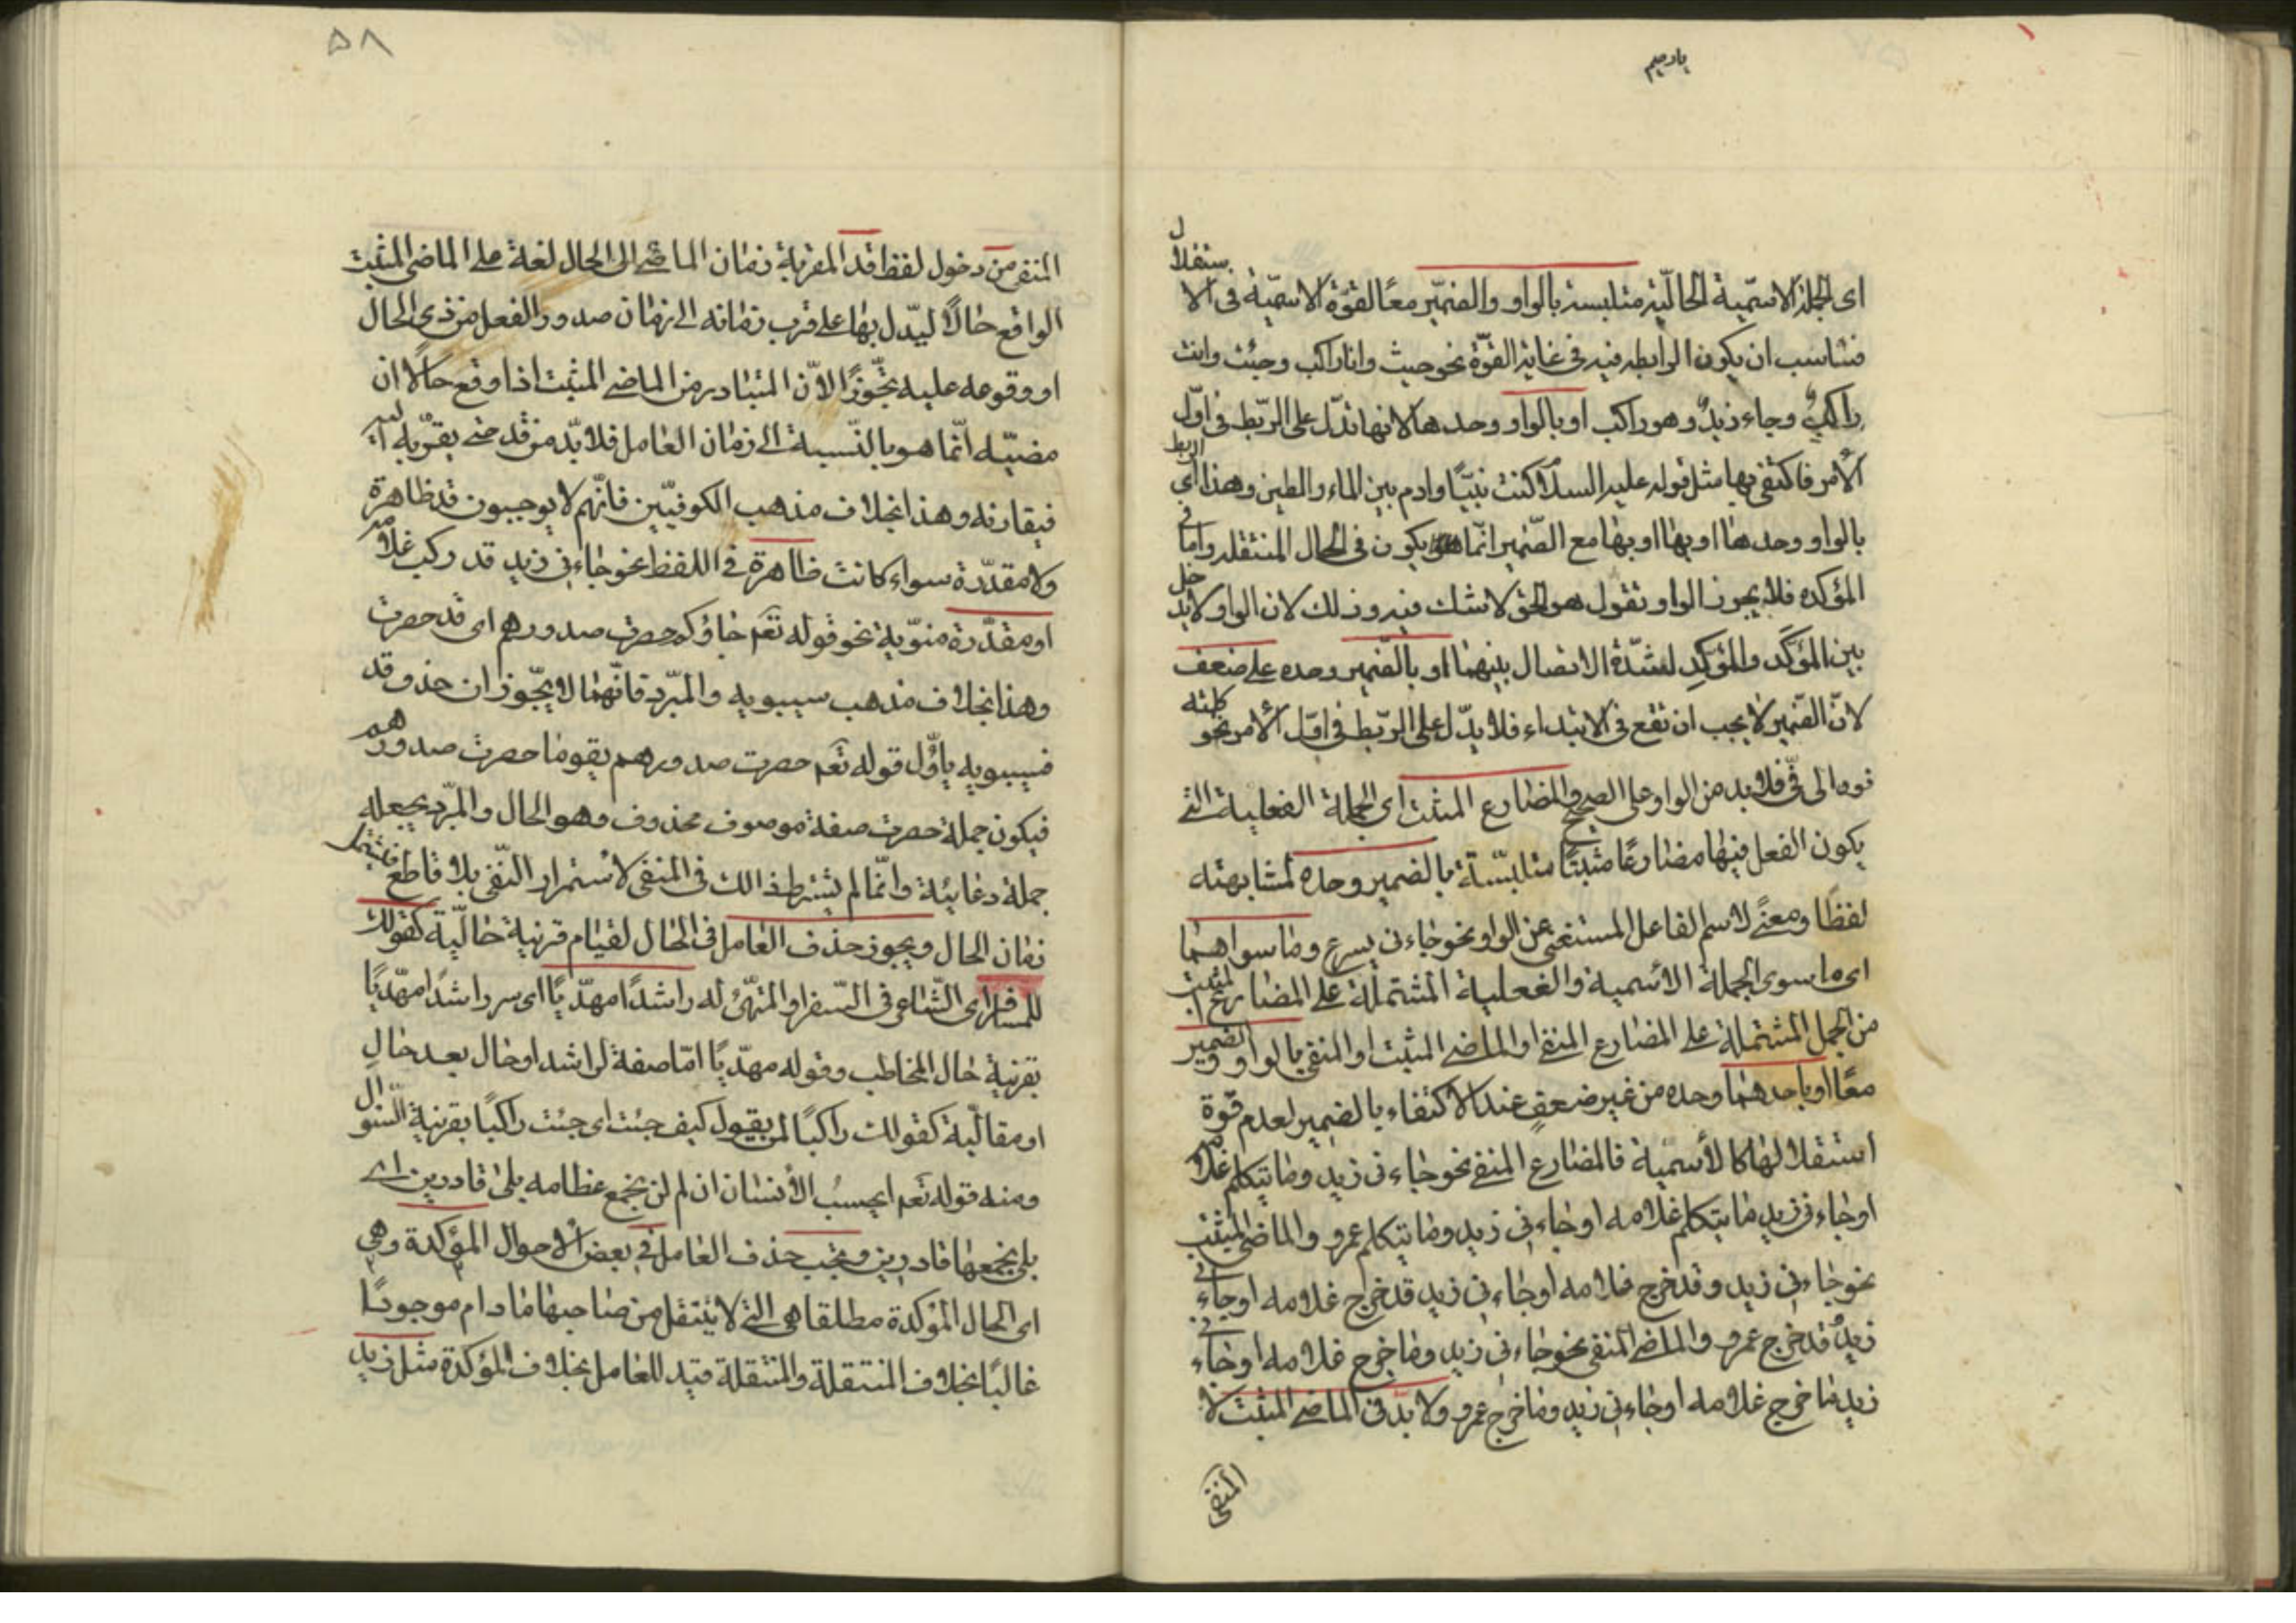 یا رحیم
ای الجملة الاسمّیة الحالّیة متلبسة بالواو والضمّیر معًا لقوّة الاسمیّة فی الاستقلال
فتناسب ان یکون الرابطه فیه فی غایة القوّة نحو جیث وانا راکب وجئت وانت
راکبٌ وجاء زیدٌ وهو راکب او بالواو وحدها لانها تدّل علی الرّبط فی اوّل
الأمر فاکتفی بها مثل قوله علیه السلام کنت نبیّا وادم بین الماء والطین وهذا ای الربط
بالواو وحدها او بها او بها مع الضّمیر انّما یکون فی الحال المنتقله واما فی
المؤکده فلا یجوز الواو تقول هو الحق لا شك فیه وذلك لان الواو لا یدخل
بین المؤکَّد والمؤکِدِ لشدّة الاتصال بینهما او بالضّمیر وحده علی ضعف
لانّ الضّمیر لا یجب ان تقع فی الابتداء فلا یدّل علی الرّبط فی اوّل الأمر نحو کلمته
فوه الی فیّ فلا بد من الواو علی الصحیح والمضارع المثبت ای الجملة الفعلیة التی
یکون الفعل فیها مضارعًا مثبتًا متلبّسة بالضمیر وحده لمشابهته
لفظًا ومعنًی لاسم الفاعل المستغنی عن الواو نحو جاءنی یسرع وما سواهما
ای ما سوی الجملة الاسمیة والفعلیة المشتملة علی المضارع المثبت
من الجمل المشتملة علی المضارع المنفی او الماضی المثبت او المنفی بالواو والضمیر
معًا او باحدهما وحده من غیر ضعفٍ عند الاکتفاء بالضمیر لعدم قوة
استقلالها کالأسمیّة فالمضارع المنفی نحو جاءنی زید وما یتکلم غلامه
او جاءنی زید ما یتکلم غلامه او جاءنی زید وما یتکلم عمرو والماضی المثبت
نحو جاءنی زید وقد خرج غلامه او جاءنی زید قد خرج غلامه او جاءنی
زیدٌ قد خرج عمرو والماضی المنفی نحو جاءنی زید وما خرج غلامه او جاءنی
زید ما خرج غلامه او جاءنی زید وما خرج عمرو ولا بدّ فی الماضی المثبت لا
المنفی
۵۸
المنفی من دخول لفظ قد المقربة زمان الماضی الی الحال لغة علی الماضی المثبت
الواقع حالًا لیدّل بها علی قرب زمانه الی زمان صدور الفعل من ذی الحال
او وقوعه علیه تجّوزًا لأنّ المتبادر من الماضی المثبت اذا وقع حالًا ان
مضیّه انّما هو بالنّسبة الی زمان العامل فلا بدّ من قد حتی یقرّبه الیه
فیقارنه وهذا بخلاف مذهب الکوفیّین فانّهم لا یوجبون قد ظاهرة
ولا مقدّرة سواء کانت ظاهرة فی اللفظ نحو جاءنی زید قد رکب غلامه
او مقدّرة منوّیة نحو قوله تعٓم جاؤکم حصرت صدورهم ای قد حصرت
وهذا بخلاف مذهب سیبویه والمبّرد فانّهما لا یجّوزان حذف قد
فسیبویه یأوّل قوله تعٓم حصرت صدورهم بقوما حصرت صدورهم
فیکون جملة حصرت صفة موصوف محذوف وهو الحال والمبّرد یجعله
جملة دعائیّة وانّما لم یشترط ذالك فی المنفی لاستمرار النّفی بلا قاطع فیشتمل
زمان الحال ویجوز حذف العامل فی الحال لقیام قرنیة حالّیة کقولك
للمسافر ای الشّاعر فی السّفر او المتهّئ له راشدًا مهدّیًا ای سر راشدًا مهدّیًا
بقرنیة حال المخاطب وقوله مهدّیًا امّا صفة لراشدا وحال بعد حالٍ
او مقالّیة کقولك راکبًا لمن یقول کیف جئت ای جئت راکبًا بقرنیة السّؤال
ومنه قوله تعٓم ایحسبُ الأنسان ان لن نجمع عظامه بلی قادرین ای
بلی نجمعها قادرین ویجب حذف العامل فی بعض الأحوال المؤکدة وهی
ای الحال المؤکدة مطلقا هی التی لا ینتقل من صاحبها ما دام موجودًا
غالبًا بخلاف المنتقلة والمنتقلة قید للعامل بخلاف المؤکدة مثل زید